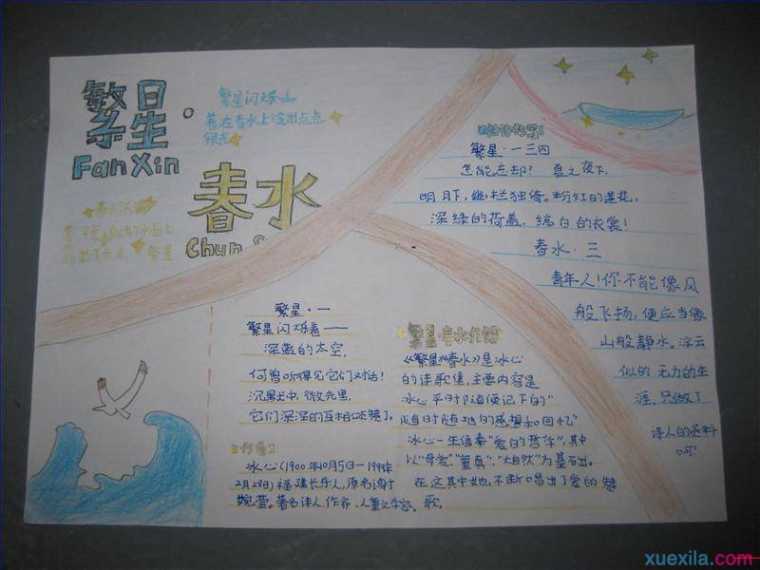 繁星。
Fan Xin
繁星闪烁
春水
Chun
繁星·一三四
怎能忘却？夏之夜下，
明月下，幽栏独倚。粉红的莲花，
深绿的荷盖，缟白的衣裳！
春水·三
青年人！你不能像风
般飞扬，便应当像
山般静止。浮云
似的无力的生
涯，只做了
诗人的资料
呵！
繁星·一
繁星闪烁着——
深蓝的太空，
何曾听得见它们对话？
沉默中，微光里，
它们深深的互相颂赞了。
冰心（1900年10月5日—1999年
2月28日）福建长乐人，原名谢
婉莹。著名诗人，作家，儿童文学家。
《繁星》《春水》是冰心
的诗歌集，主要内容是
冰心平时"随便记下的"
"随时随地的感想和回忆"
冰心一生信奉"爱的哲学"，其中
以"母爱""童真""大自然"为基石出。
在这其中她，不断唱出了爱的赞
歌。
xuexila.com